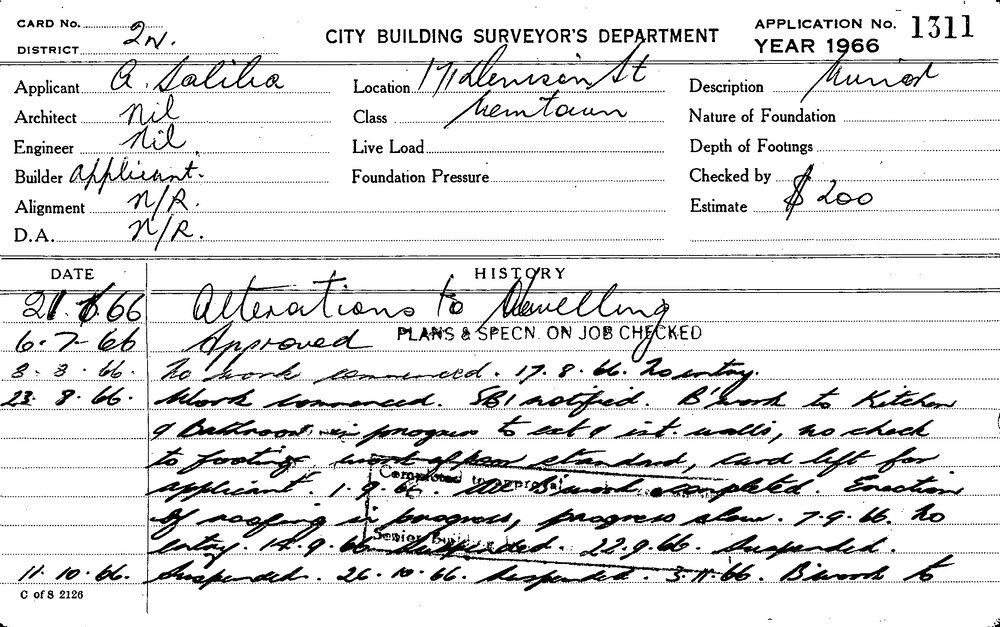 CARD No.
DISTRICT 2W.
CITY BUILDING SURVEYOR'S DEPARTMENT
APPLICATION No. 1311
YEAR 1966
Applicant A. Saliba Location 171 Denison St Description Minor
Architect Nil Class Newtown Nature of Foundation
Engineer Nil Live Load Depth of Footings
Builder applicant. Foundation Pressure Checked by
Alignment N/R. Estimate $ 200
D.A. N/R.
DATE HISTORY
21.6.66 Alterations to Dwelling
6-7-66 Approved PLANS & SPECN. ON JOB CHECKED
3. 66. No work commenced. 17.8.66. No entry.
23. 8. 66. Work commenced. SBI notified. B'work to Kitchen
& Bathroom in progress to ext & int. walls, no check
to footings work of poor standard, card left for
applicant. 1.9.66. B'work completed. Erection
of roofing in progress, progress slow. 7.9.66. No
entry. 14.9.66 Suspended. 22.9.66. Suspended.
11.10.66. Suspended. 26.10.66. Suspended. 3.11.66. B'work to
Completed to approval
Senior
C of S 2126